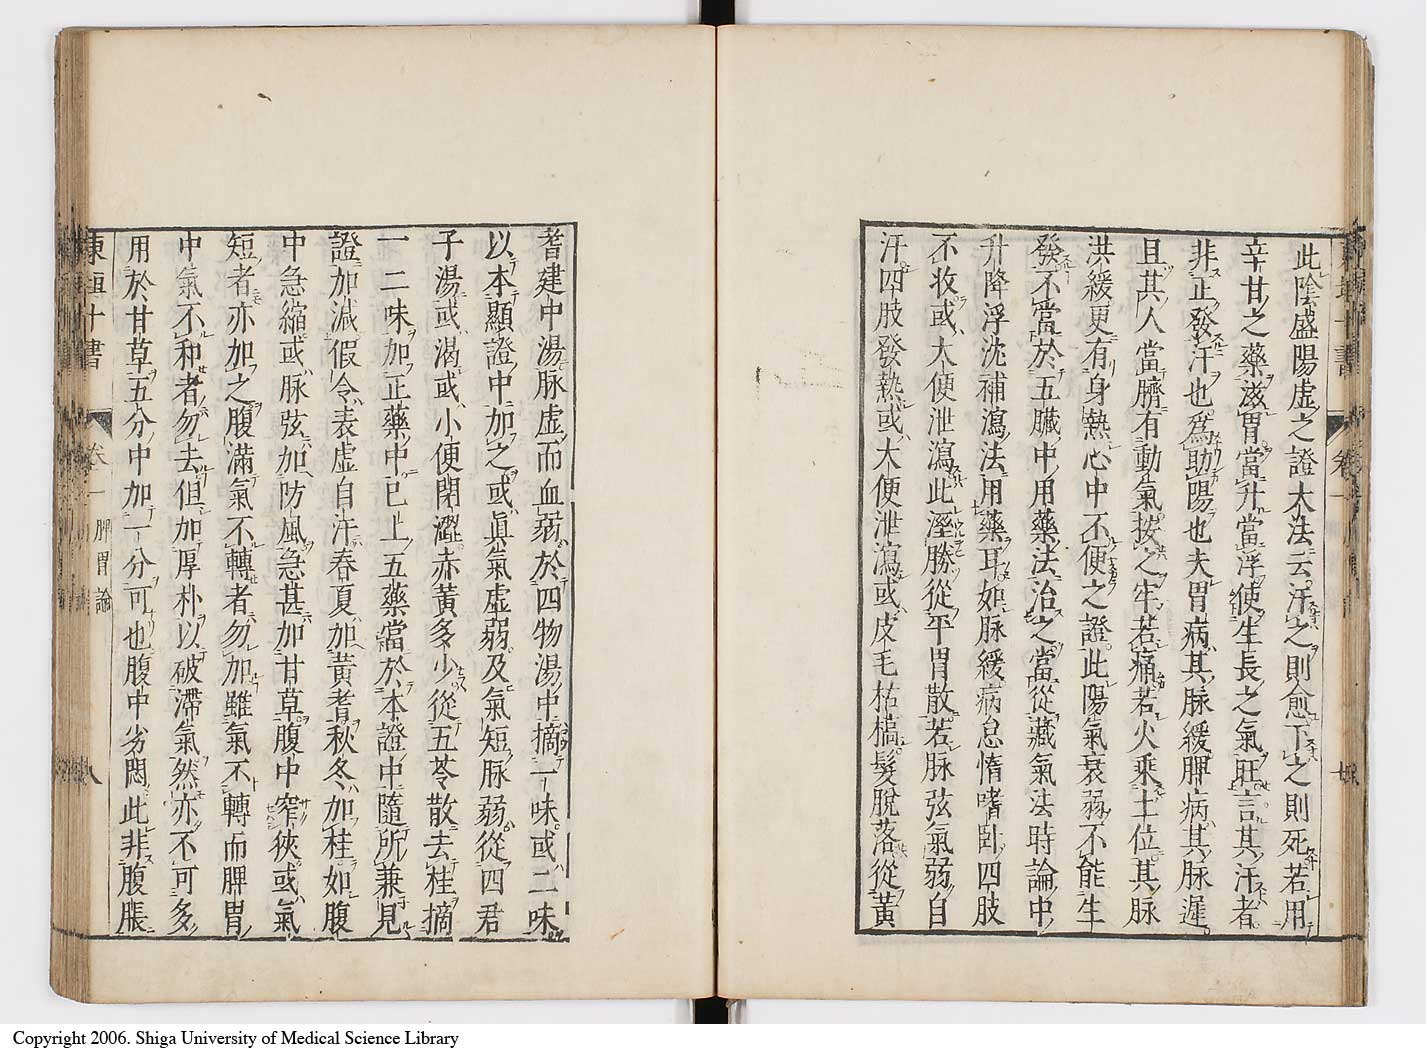 此陰盛陽虚之證大法云汗之則愈下之則死若用
辛甘之藥滋胃當升當浮使生長之氣旺言其汗者
非正發汗也爲助陽也夫胃病其脉緩脾病其脉遲
且其人當臍有動氣按之牢若痛若火乘土位其脉
洪緩更有身熱心中不便之證此陽氣衰弱不能生
發不當於五臓中用藥法治之當從藏氣法時論中
升降浮沈補瀉法用藥耳如脉緩病怠惰嗜卧四肢
不收或大便泄瀉此溼勝從平胃散若脉弦氣弱自
汗四肢發熱或大便泄瀉或皮毛枯槁髮脫落從黃
耆建中湯脉虚而血弱於四物湯中摘一味或二味
以本顯證中加之或眞氣虚弱及氣短脉弱從四君
子湯或渴或小便閉澀赤黃多少從五苓散去桂摘
一二味加正藥中已上五藥當於本證中隨所兼見
證加減假令表虚自汗春夏加黃耆秋冬加桂如腹
中急縮或脉弦加防風急甚加甘草腹中窄狹或氣
短者亦加之腹滿氣不轉者勿加雖氣不轉而脾胃
中氣不和者勿去但加厚朴以破滯氣然亦不可多
用於甘草五分中加一分可也腹中夯悶此非腹脹
東垣十書 卷一 脾胃論 八
Copyright 2006. Shiga University of Medical Science Library